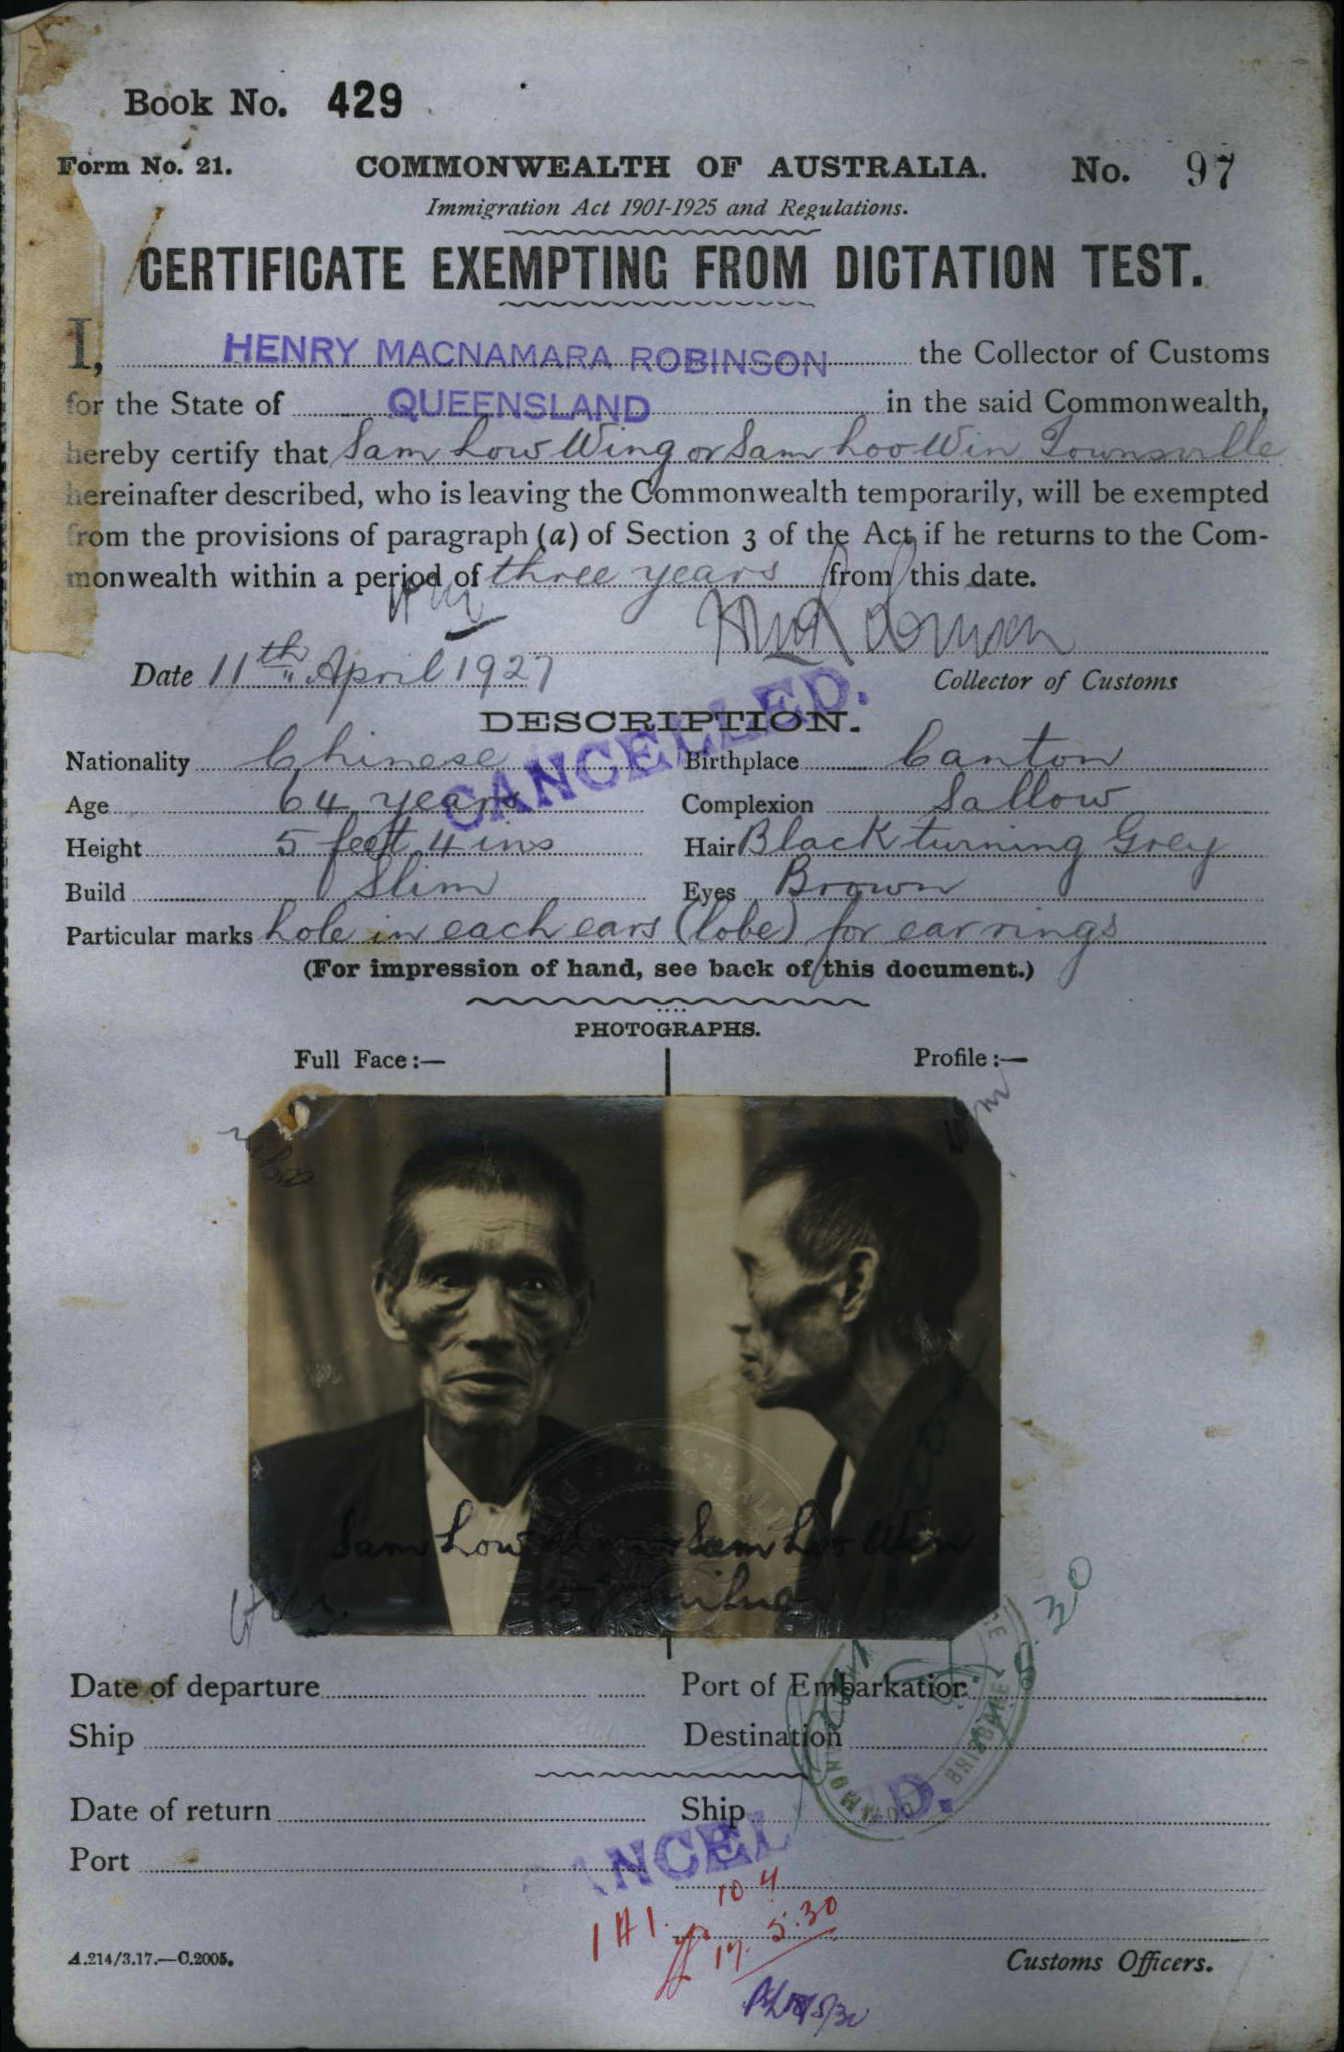 Book No. 429
Form No. 21. COMMONWEALTH OF AUSTRALIA. No. 97
Immigration Act 1901-1925 and Regulations.
CERTIFICATE EXEMPTING FROM DICTATION TEST.
I, HENRY MACNAMARA ROBINSON the Collector of Customs
for the State of QUEENSLAND in the said Commonwealth,
hereby certify that Sam Low Wing or Sam Loo Win Townsville
hereinafter described, who is leaving the Commonwealth temporarily, will be exempted
from the provisions of paragraph (a) of Section 3 of the Act if he returns to the Com-
monwealth within a period of three years from this date.
Date 11th April 1927
Collector of Customs
CANCELLED.
DESCRIPTION.
Nationality Chinese Birthplace Canton
Age 64 years Complexion Sallow
Height 5 feet 4 ins Hair Black turning Grey
Build Slim Eyes Brown
Particular marks hole in each ears (lobe) for ear rings
(For impression of hand, see back of this document.)
PHOTOGRAPHS.
Full Face:— Profile:—
Sam Low Sam Loo Win
Date of departure Port of Embarkation
Ship Destination
BRISBANE
Date of return Ship
Port
CANCELLED.
10 4
141. 17.5.30
A.214/3.17.—C.2005. Customs Officers.